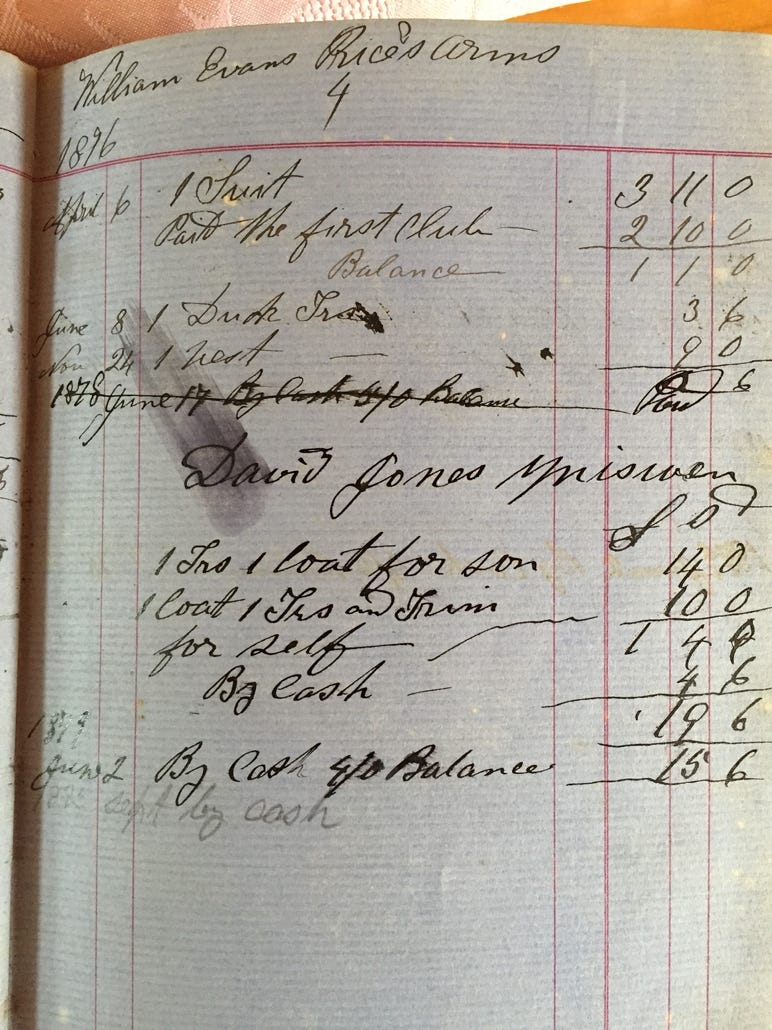 William Evans Price's Arms
4
1896
April 6 1 Suit 3 11 0
Paid the first Club 2 10 0
Balance 1 1 0
June 8 1 Duck Trs 3 6
Nov 24 1 Vest 9 0
1878 June 17 By Cash Balance Paid 6
David Jones Yniswen
1 Trs 1 Coat for son 14 0
1 Coat 1 Trs and Trim 10 0
for self 1 4 0
By Cash 4 6
19 6
1879
June 2 By Cash 4/0 Balance 15 6
sept by cash